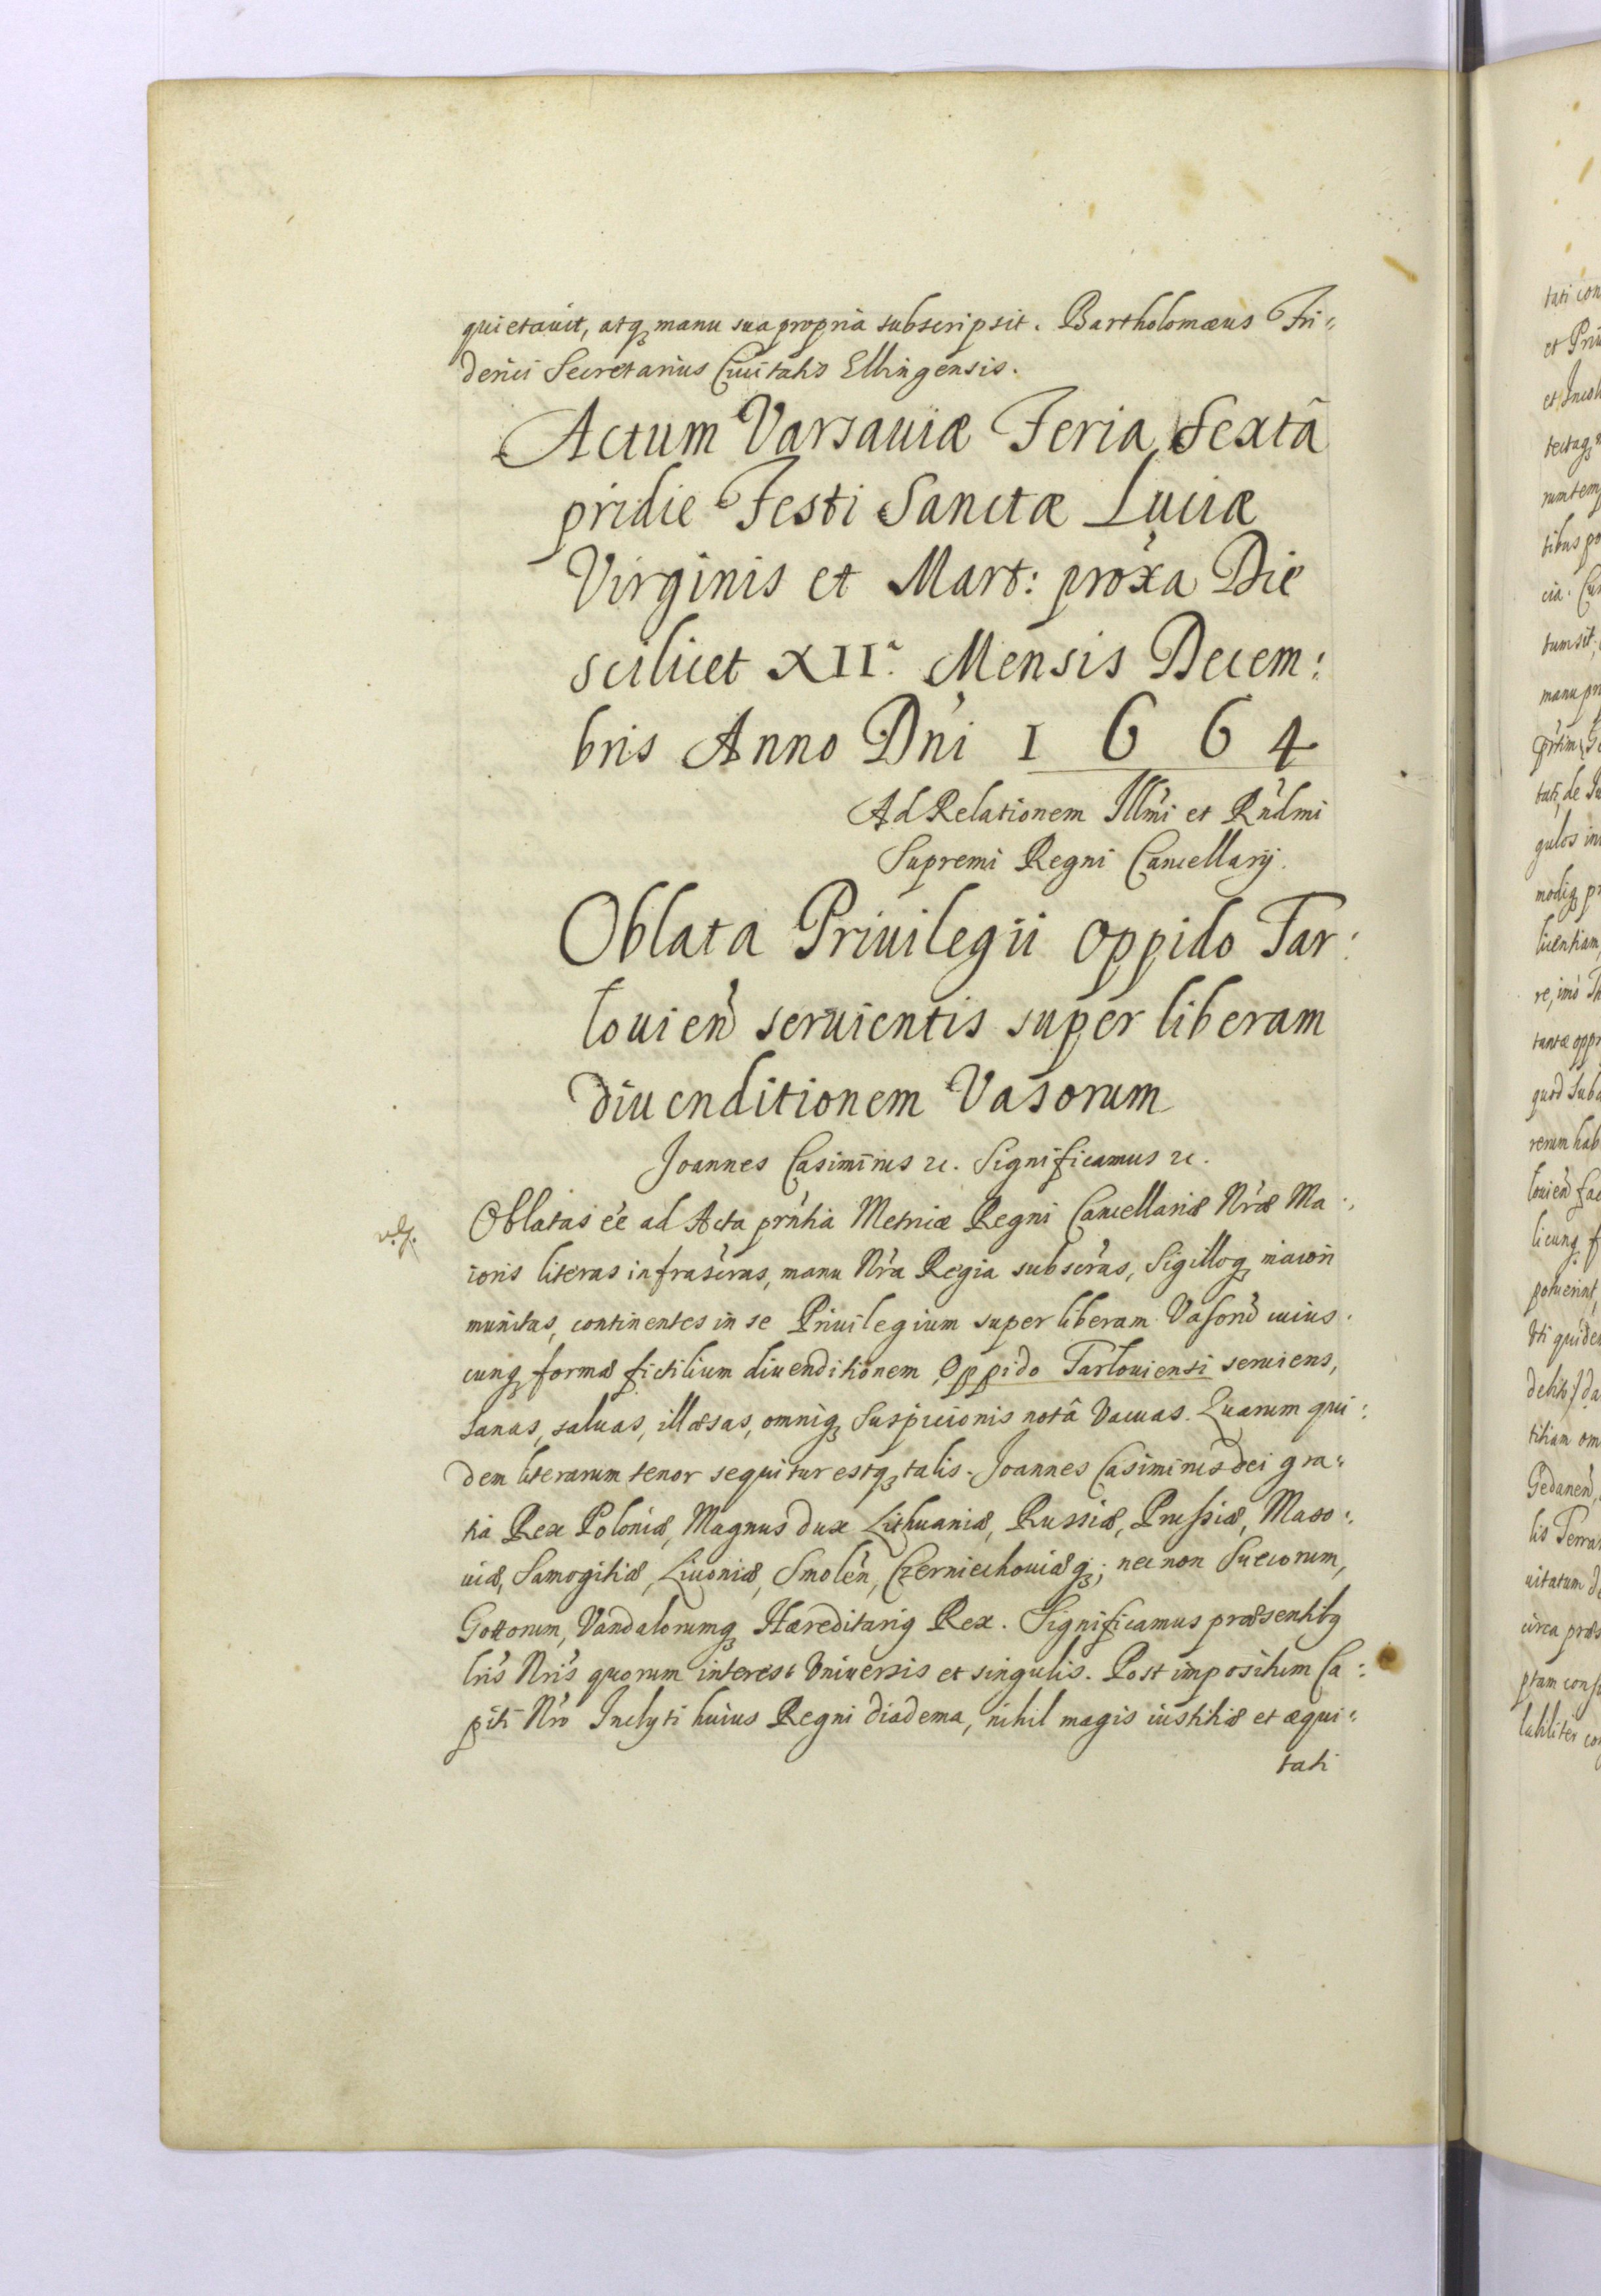 quietauit, atq manu sua propria subscripsit. Bartholomæus Fri:
derici Secretarius Ciuitatis Elbingensis.
Actum Varsauiæ Feria Sextâ
pridie Festi Sanctæ Luciæ
Virginis et Mart: proxa Die
scilicet XIIa. Mensis Decem:
bris Anno Dni 1664
Ad Relationem Illmi et Rndmi
Supremi Regni Cancellarij.
Oblata Priuilegii oppido Tar:
louien seruientis super liberam
diuenditionem Vasorum
Joannes Casimirus etc. Significamus etc.
Oblatas ee ad Acta prntia Metricæ Regni Cancellariæ Nræ Ma:
ioris literas infrascras, manu Nra Regia subscras, Sigilloq maiori
munitas, continentes in se Priuilegium super liberam Vasoru cuius:
cunq formæ fictilium diuenditionem Oppido Tarlouiensi seruiens,
sanas, saluas, illæsas, omniq Suspicionis notâ Vacuas. Quarum qui:
dem literarum tenor sequitur estq talis. Joannes Casimirus dei gra:
tia Rex Poloniæ, Magnus dux Lithuaniæ, Russiæ, Prussiæ, Maso:
uiæ, Samogitiæ, Liuoniæ, Smolen, Czerniechouiæq; nec non Suecorum,
Gottorum, Vandalorumq Hæreditarig Rex. Significamus præsentibq
lris Nris quorum interest Vniuersis et singulis. Post impositum Ca:
piti Nro Inclyti huius Regni diadema, nihil magis iustitiæ et æqui:
tati